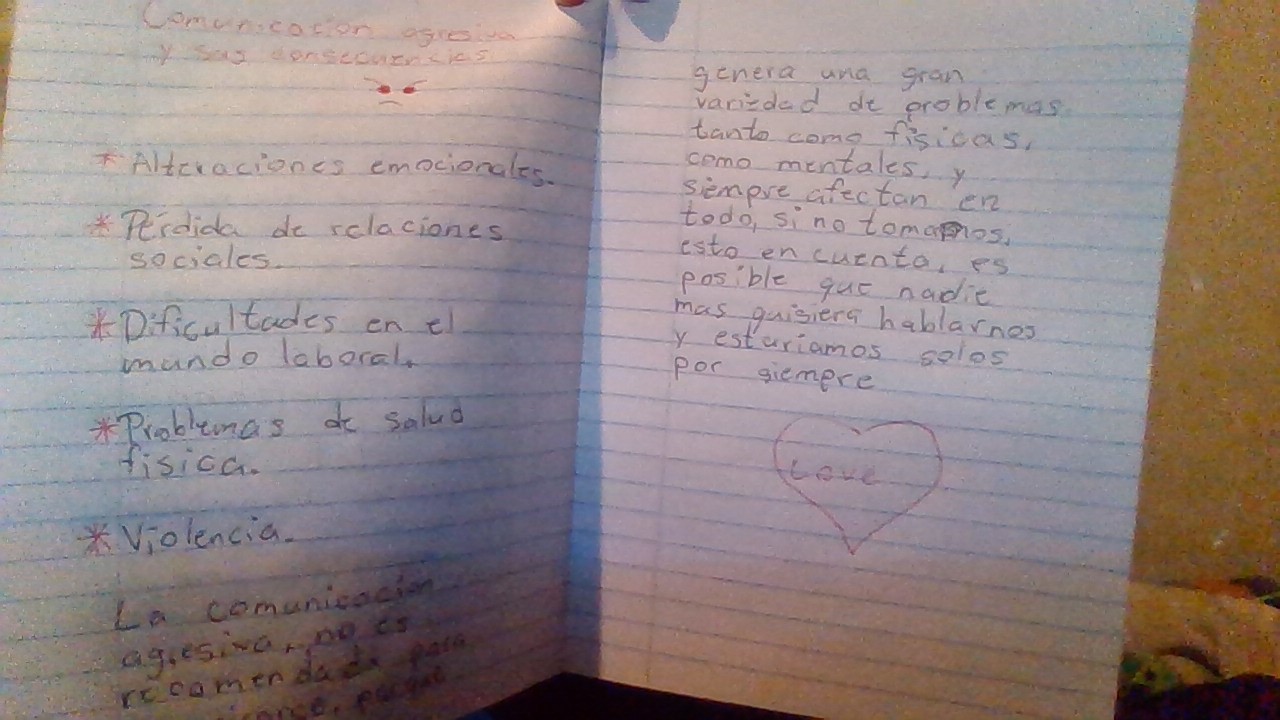 Comunicacion agresiva
y sus consecuencias
* Alteraciones emocionales.
* Pérdida de relaciones
sociales.
* Dificultades en el
mundo laboral.
* Problemas de salud
física.
* Violencia.
La comunicación
agresiva, no es
recomendada para
porque
genera una gran
variedad de problemas
tanto como físicas,
como mentales, y
siempre afectan en
todo, si no tomamos,
esto en cuenta, es
posible que nadie
mas quisiera hablarnos
y estaríamos solos
por siempre
Love